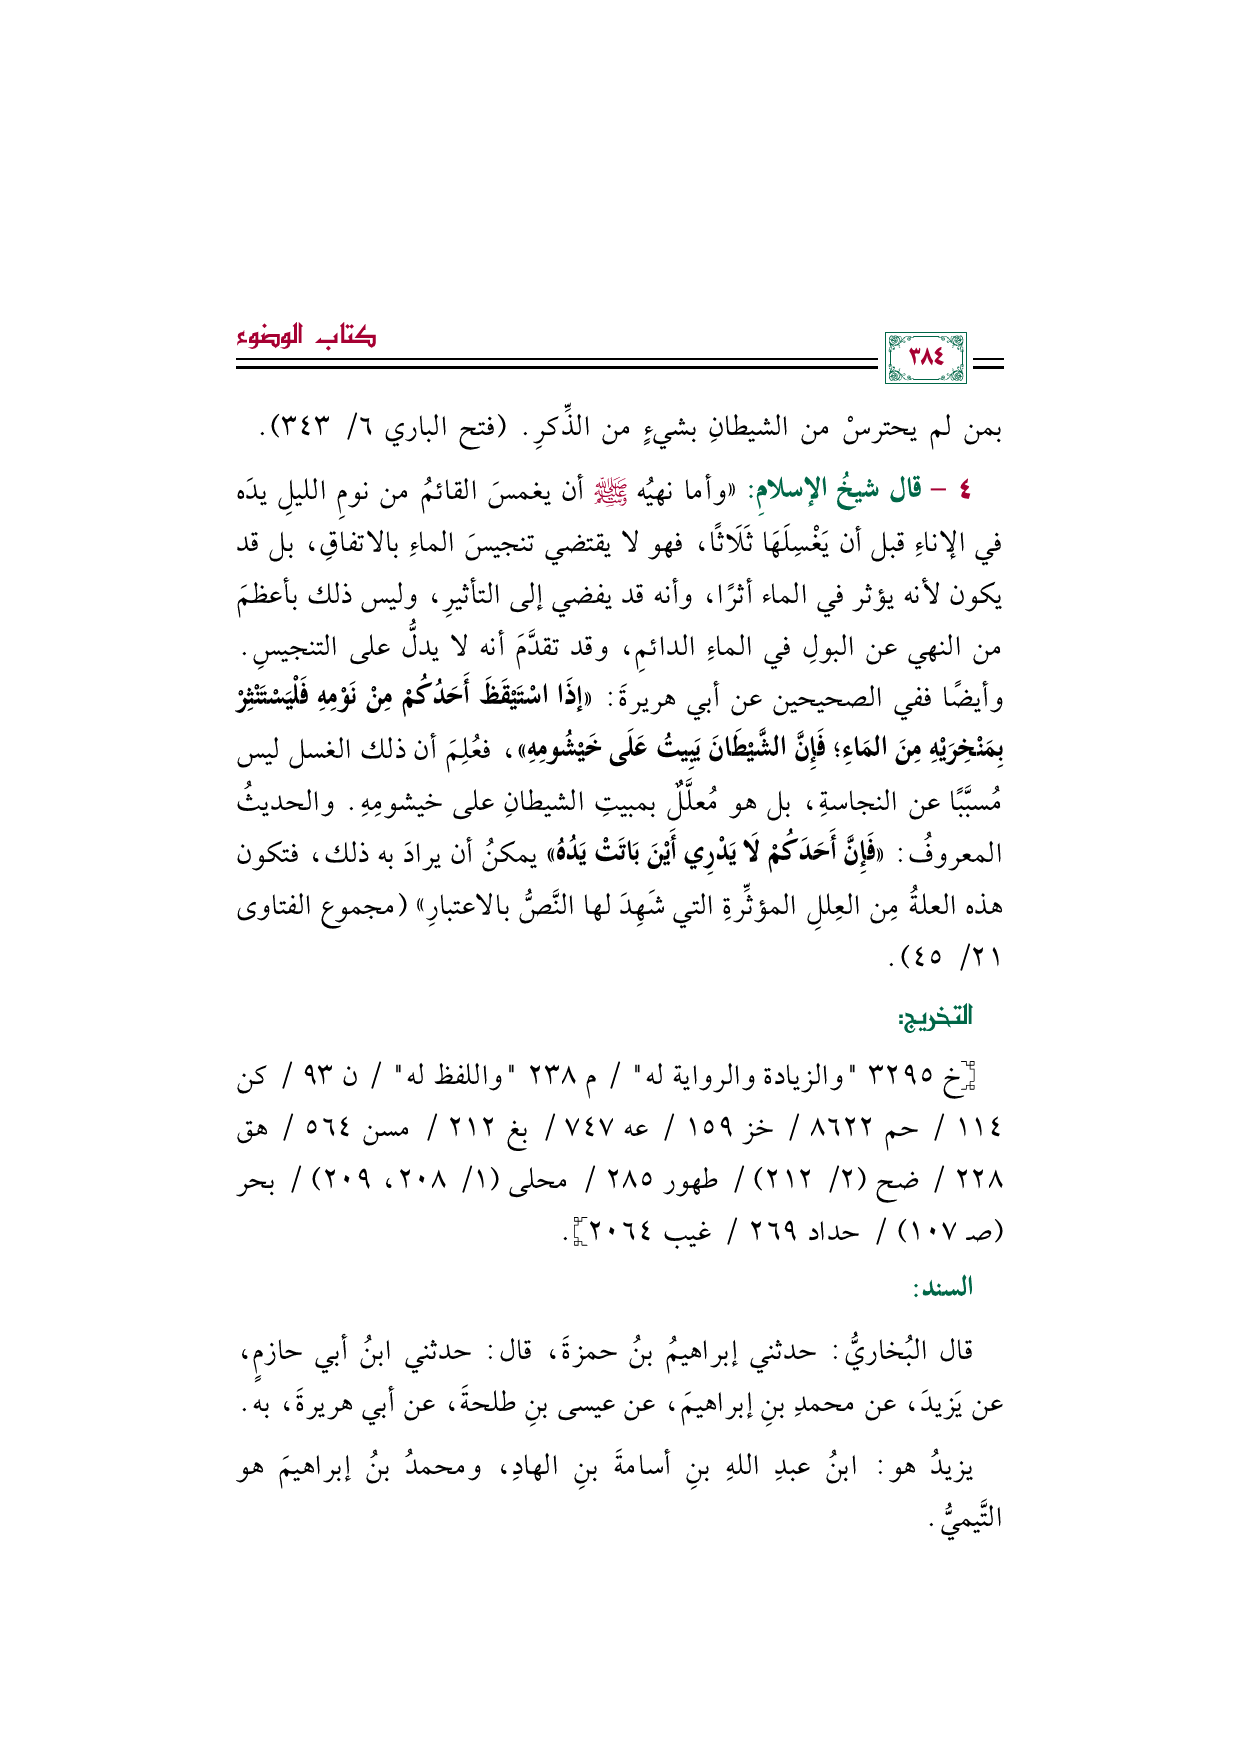 كتاب الوضوء
٣٨٤
بمن لم يحترسْ من الشيطانِ بشيءٍ من الذِّكرِ. (فتح الباري ٦/ ٣٤٣).
٤ – قال شيخُ الإسلامِ: «وأما نهيُه ﷺ أن يغمسَ القائمُ من نومِ الليلِ يدَه
في الإناءِ قبل أن يَغْسِلَهَا ثَلَاثًا، فهو لا يقتضي تنجيسَ الماءِ بالاتفاقِ، بل قد
يكون لأنه يؤثر في الماء أثرًا، وأنه قد يفضي إلى التأثيرِ، وليس ذلك بأعظمَ
من النهي عن البولِ في الماءِ الدائمِ، وقد تقدَّمَ أنه لا يدلُّ على التنجيسِ.
وأيضًا ففي الصحيحين عن أبي هريرةَ: «إِذَا اسْتَيْقَظَ أَحَدُكُمْ مِنْ نَوْمِهِ فَلْيَسْتَنْثِرْ
بِمَنْخِرَيْهِ مِنَ المَاءِ؛ فَإِنَّ الشَّيْطَانَ يَبِيتُ عَلَى خَيْشُومِهِ»، فعُلِمَ أن ذلك الغسل ليس
مُسبَّبًا عن النجاسةِ، بل هو مُعلَّلٌ بمبيتِ الشيطانِ على خيشومِهِ. والحديثُ
المعروفُ: «فَإِنَّ أَحَدَكُمْ لَا يَدْرِي أَيْنَ بَاتَتْ يَدُهُ» يمكنُ أن يرادَ به ذلك، فتكون
هذه العلةُ مِن العِللِ المؤثِّرةِ التي شَهِدَ لها النَّصُّ بالاعتبارِ» (مجموع الفتاوى
٢١/ ٤٥).
التخريج:
[خ ٣٢٩٥ "والزيادة والرواية له" / م ٢٣٨ "واللفظ له" / ن ٩٣ / كن
١١٤ / حم ٨٦٢٢ / خز ١٥٩ / عه ٧٤٧ / بغ ٢١٢ / مسن ٥٦٤ / هق
٢٢٨ / ضح (٢/ ٢١٢) / طهور ٢٨٥ / محلى (١/ ٢٠٨، ٢٠٩) / بحر
(صـ ١٠٧) / حداد ٢٦٩ / غيب ٢٠٦٤].
السند:
قال البُخاريُّ: حدثني إبراهيمُ بنُ حمزةَ، قال: حدثني ابنُ أبي حازمٍ،
عن يَزيدَ، عن محمدِ بنِ إبراهيمَ، عن عيسى بنِ طلحةَ، عن أبي هريرةَ، به.
يزيدُ هو: ابنُ عبدِ اللهِ بنِ أسامةَ بنِ الهادِ، ومحمدُ بنُ إبراهيمَ هو
التَّيميُّ.